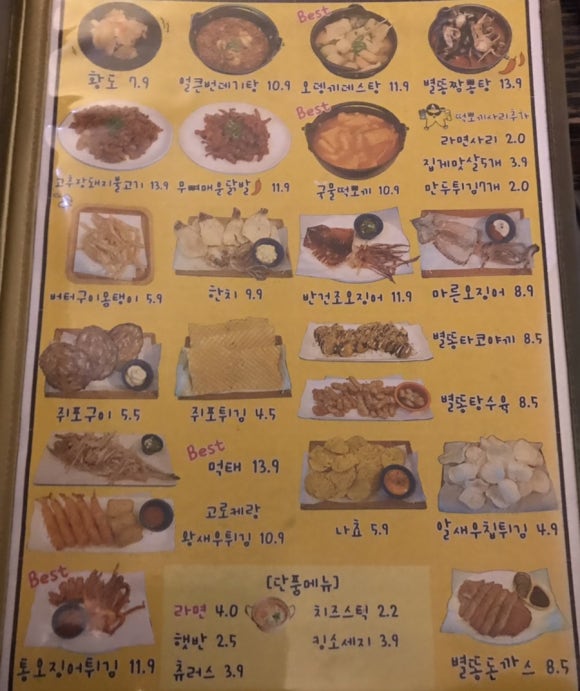 황도 7.9
얼큰번데기탕 10.9
Best
오뎅끼데스탕 11.9
별똥짬뽕탕 13.9
고추장돼지불고기 13.9
무뼈매운닭발 11.9
Best
구울떡뽀끼 10.9
떡뽀끼사리추가
라면사리 2.0
집게맛살5개 3.9
만두튀김7개 2.0
버터구이옴탱이 5.9
한치 9.9
반건조오징어 11.9
마른오징어 8.9
쥐포구이 5.5
쥐포튀김 4.5
별똥타코야끼 8.5
별똥탕수육 8.5
Best
먹태 13.9
고로케랑
왕새우튀김 10.9
나쵸 5.9
알새우칩튀김 4.9
Best
통오징어튀김 11.9
[단품메뉴]
라면 4.0
치즈스틱 2.2
햇반 2.5
킹소세지 3.9
츄러스 3.9
별똥돈까스 8.5